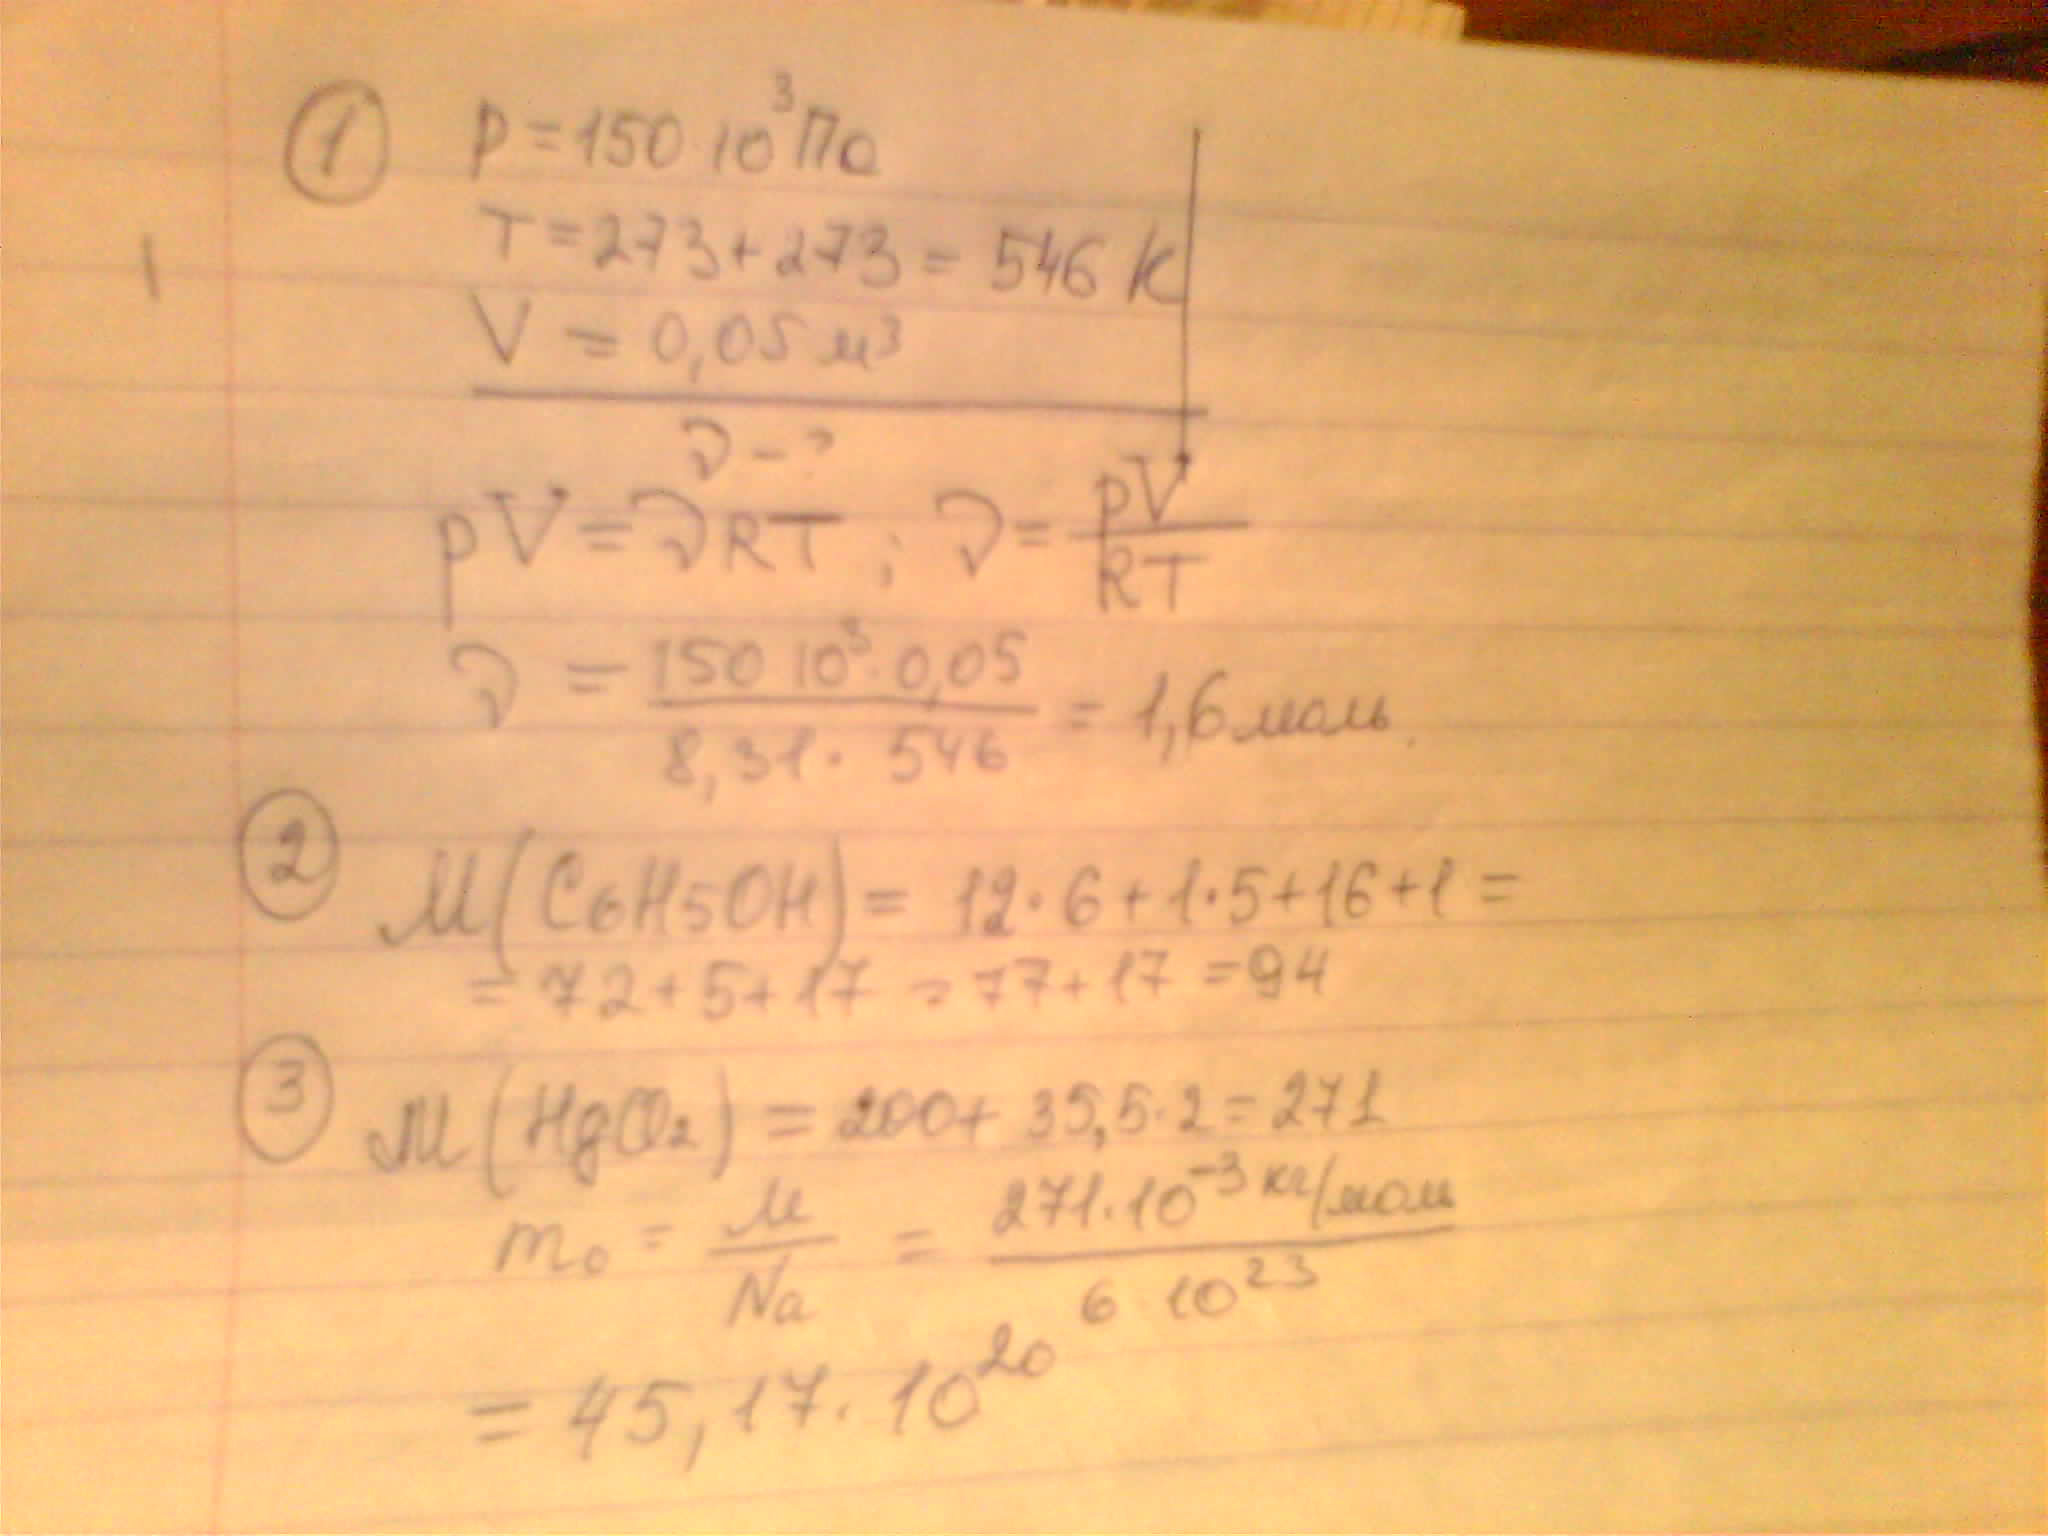 1 P = 150 10³ Па
T = 273 + 273 = 546 K
V = 0,05 м³
ν - ?
pV = νRT ; ν = pV / RT
ν = 150 10³ · 0,05 / 8,31 · 546 = 1,6 моль.
2 M(C₆H₅OH) = 12 · 6 + 1 · 5 + 16 + 1 =
= 72 + 5 + 17 = 77 + 17 = 94
3 M(HgCl₂) = 200 + 35,5 · 2 = 271
m₀ = M / Na = 271 · 10⁻³ кг/моль / 6 10²³
= 45,17 · 10²⁰